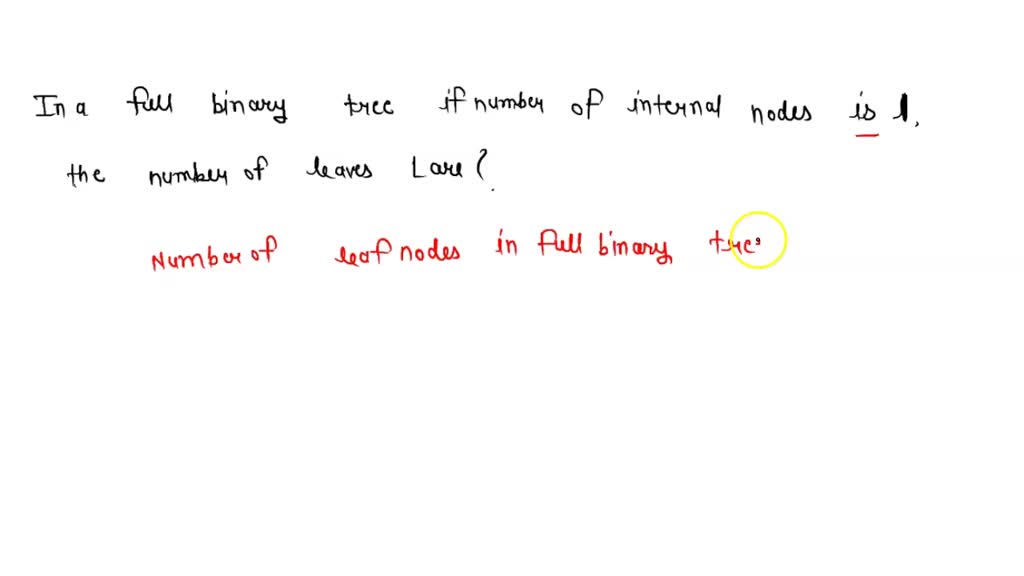 In a full binary tree if number of internal nodes is I,
the number of leaves L are?
Number of leaf nodes in full binary tree